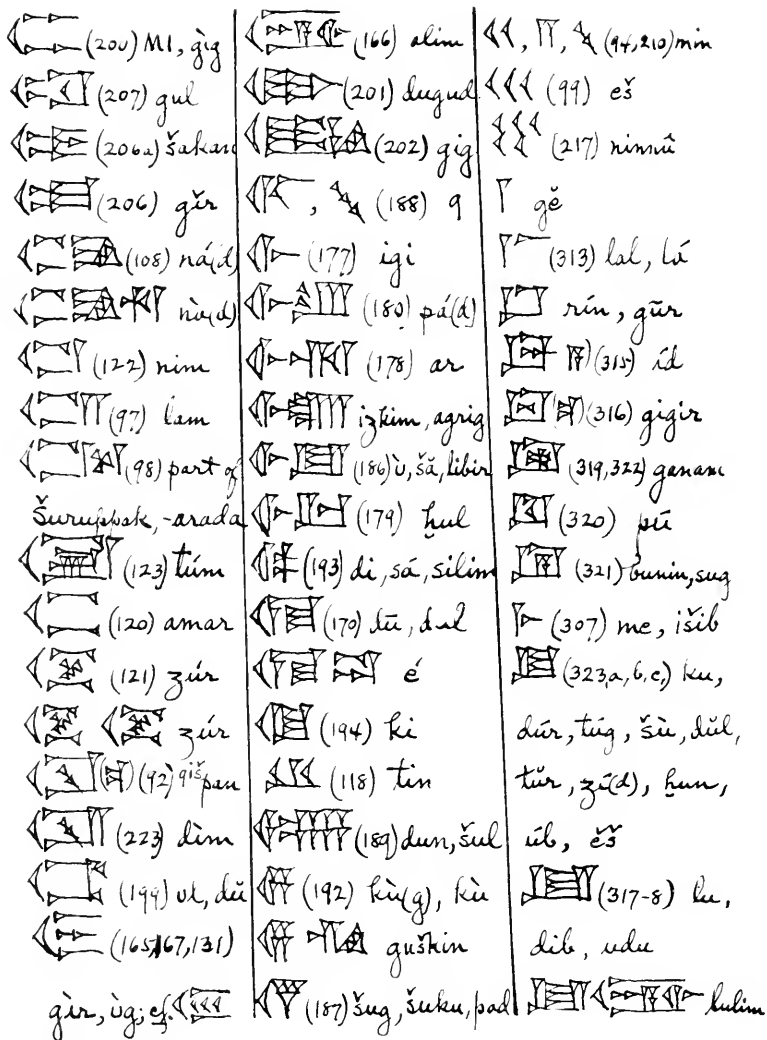 (200) MI, gìg
(207) gul
(206a) šakan
(206) gǐr
(108) ná(d)
nà(d)
(122) nim
(97) lam
(98) part of
Šuruppak, -arada
(123) túm
(120) amar
(121) zúr
zúr
(92) giš pan
(223) dìm
(199) ul, dŭ
(165, 167, 131)
gìr, ùg; cf.
(166) alim
(201) dugud
(202) gig
, (188) 9
(177) igi
(180) pá(d)
(178) ar
izkim, agrig
(186) ù, šă, libir
(179) ḫul
(193) di, sá, silim
(170) dū, dul
é
(194) ki
(118) tin
(189) dun, šul
(192) kù(g), kù
guškin
(187) šug, šuku, pad
, , (94, 210) min
(99) eš
(217) ninnû
gĕ
(313) lal, lá
rín, gūr
(315) íd
(316) gigir
(319, 322) ganam
(320) pú
(321) bunin, sug
(307) me, išib
(323, a, b, c,) ku,
dúr, túg, šù, dŭl,
tŭr, zí(d), ḫun,
úb, ĕš
(317-8) lu,
dib, udu
lulim